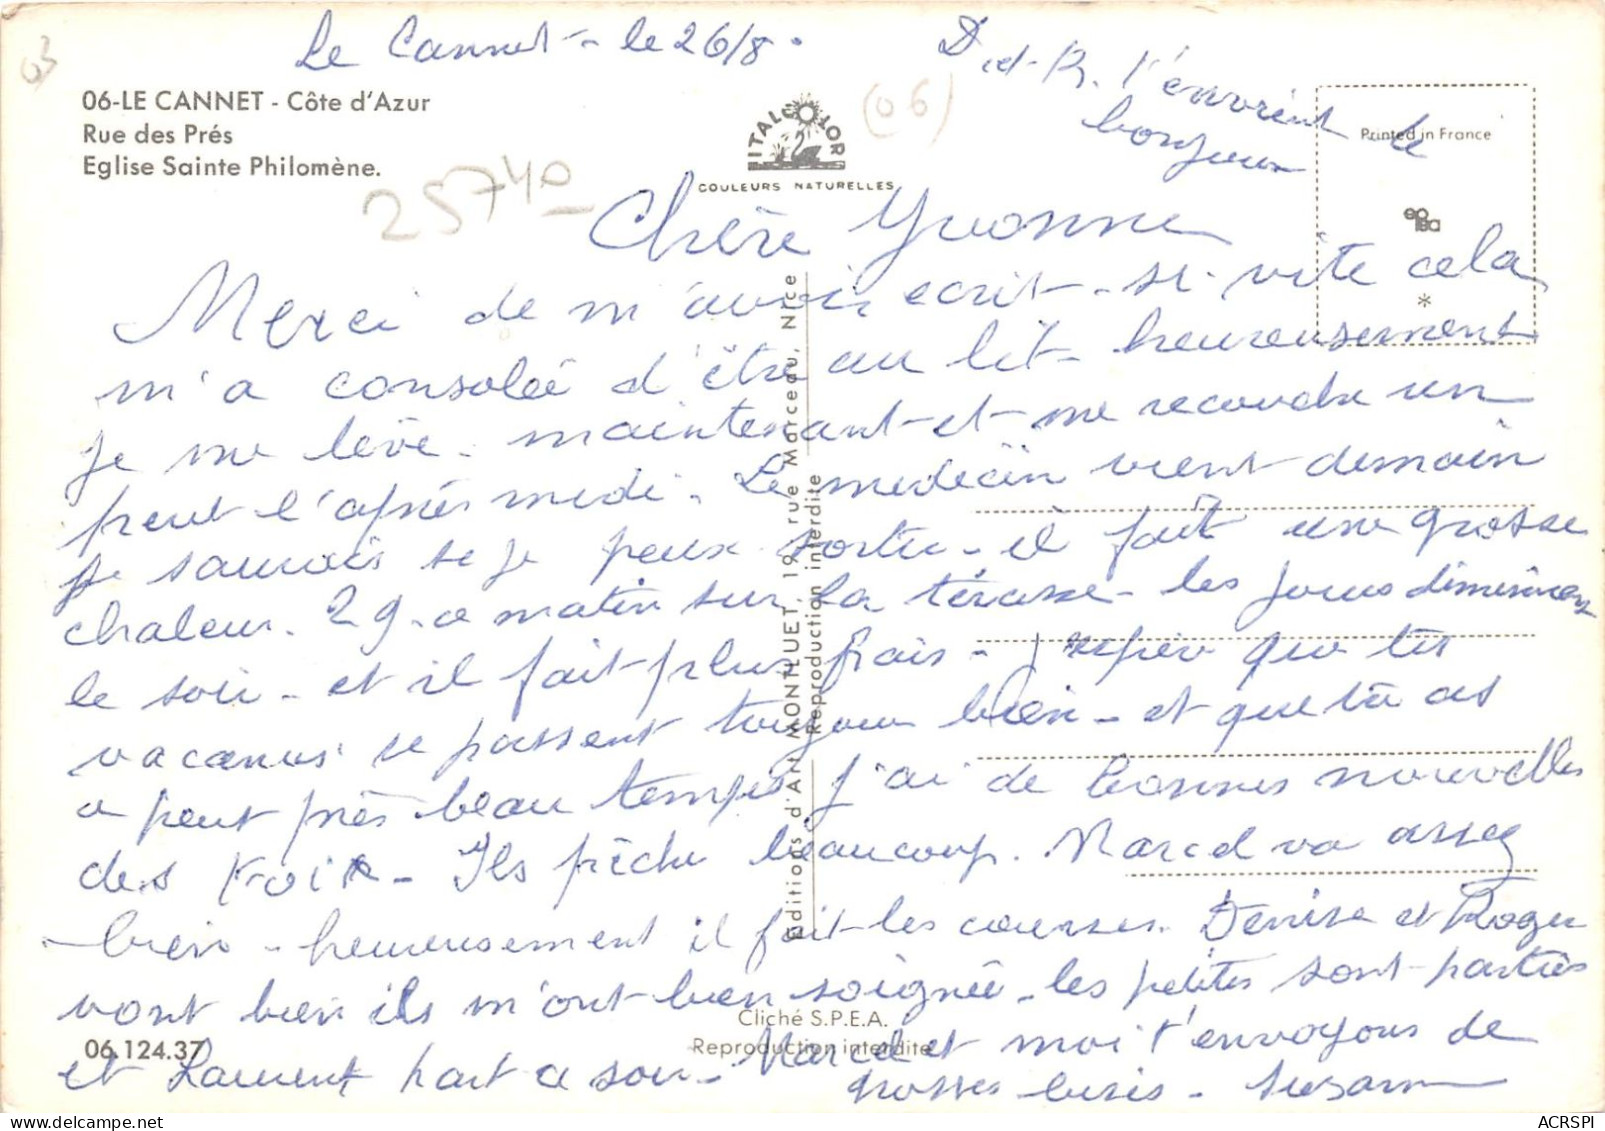 03
Le Cannet - le 26/8.
D et R. t'envoient le
bonjour
06-LE CANNET - Côte d'Azur
Rue des Prés
Eglise Sainte Philomène.
ITALCOLOR
COULEURS NATURELLES
(06)
Printed in France
25740
Chère Yvonne
Merci de m'avoir ecrit - si vite cela
m'a consolée d'être au lit - heureusement
je me lève - maintenant - et - me recouche un
peut l'après midi. Le medecin vient demain
je saurais se je peux sortir - il fait une grosse
chaleur. 29. ce matin sur la térasse - les jours diminuent
le soir - et il fait plus frais - j'espère que tes
vacances se passent toujours bien - et que tu as
a peut près beau temps j'ai de bonnes nouvelles
des Troix - Ils pêche beaucoup. Marcel va assez
bien - heureusement il fait les courses. Denise et Roger
vont bien ils m'ont bien soignée - les petites sont parties
et Laurent part ce soir - Marcel et moi t'envoyons de
grosses bises - Suzanne
Editions d'AN MONTLUET, 19, rue Marceau, Nice
Reproduction interdite
Cliché S.P.E.A.
Reproduction interdite
06.124.37
ACRSPI